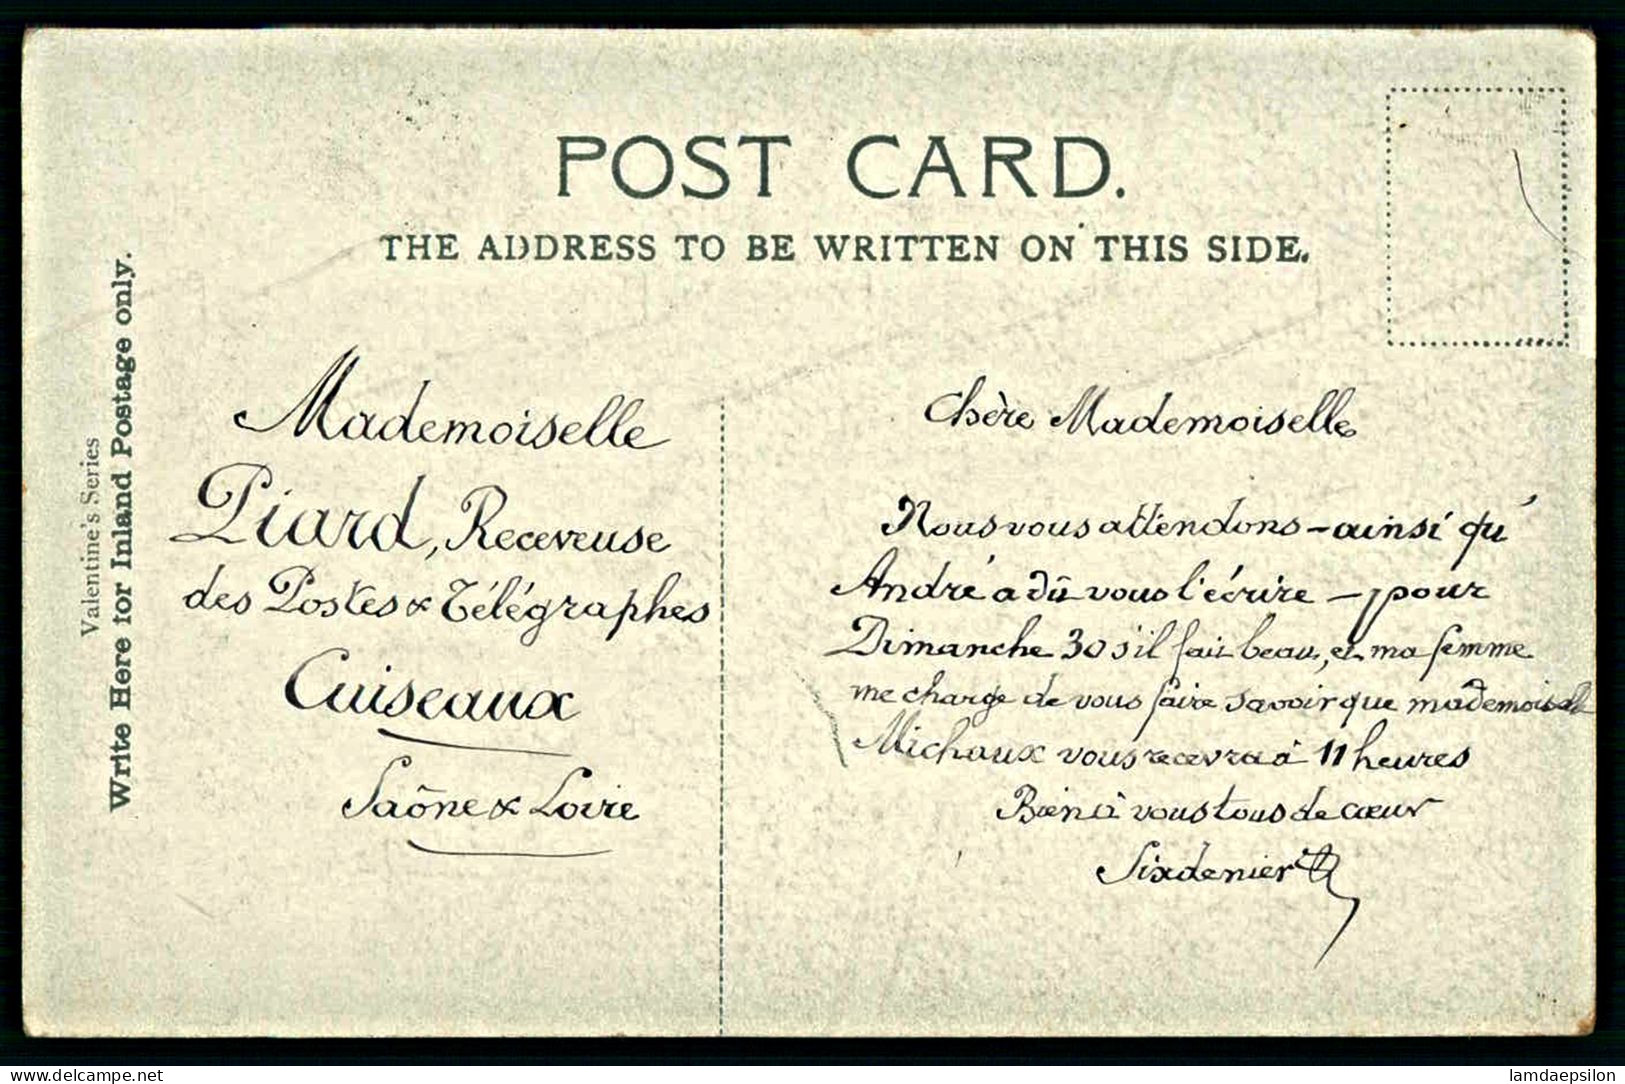 POST CARD.
THE ADDRESS TO BE WRITTEN ON THIS SIDE.
Valentine's Series
Write Here for Inland Postage only.
Mademoiselle
Piard, Receveuse
des Postes & Télégraphes
Cuiseaux
Saône & Loire
Chère Mademoiselle
Nous vous attendons - ainsi qu'
André a dû vous l'écrire - pour
Dimanche 30 s'il fait beau, et ma femme
me charge de vous faire savoir que mademoiselle
Michaux vous recevra à 11 heures
Bien à vous tous de cœur
Sixdenier
lamdaepsilon
www.delcampe.net